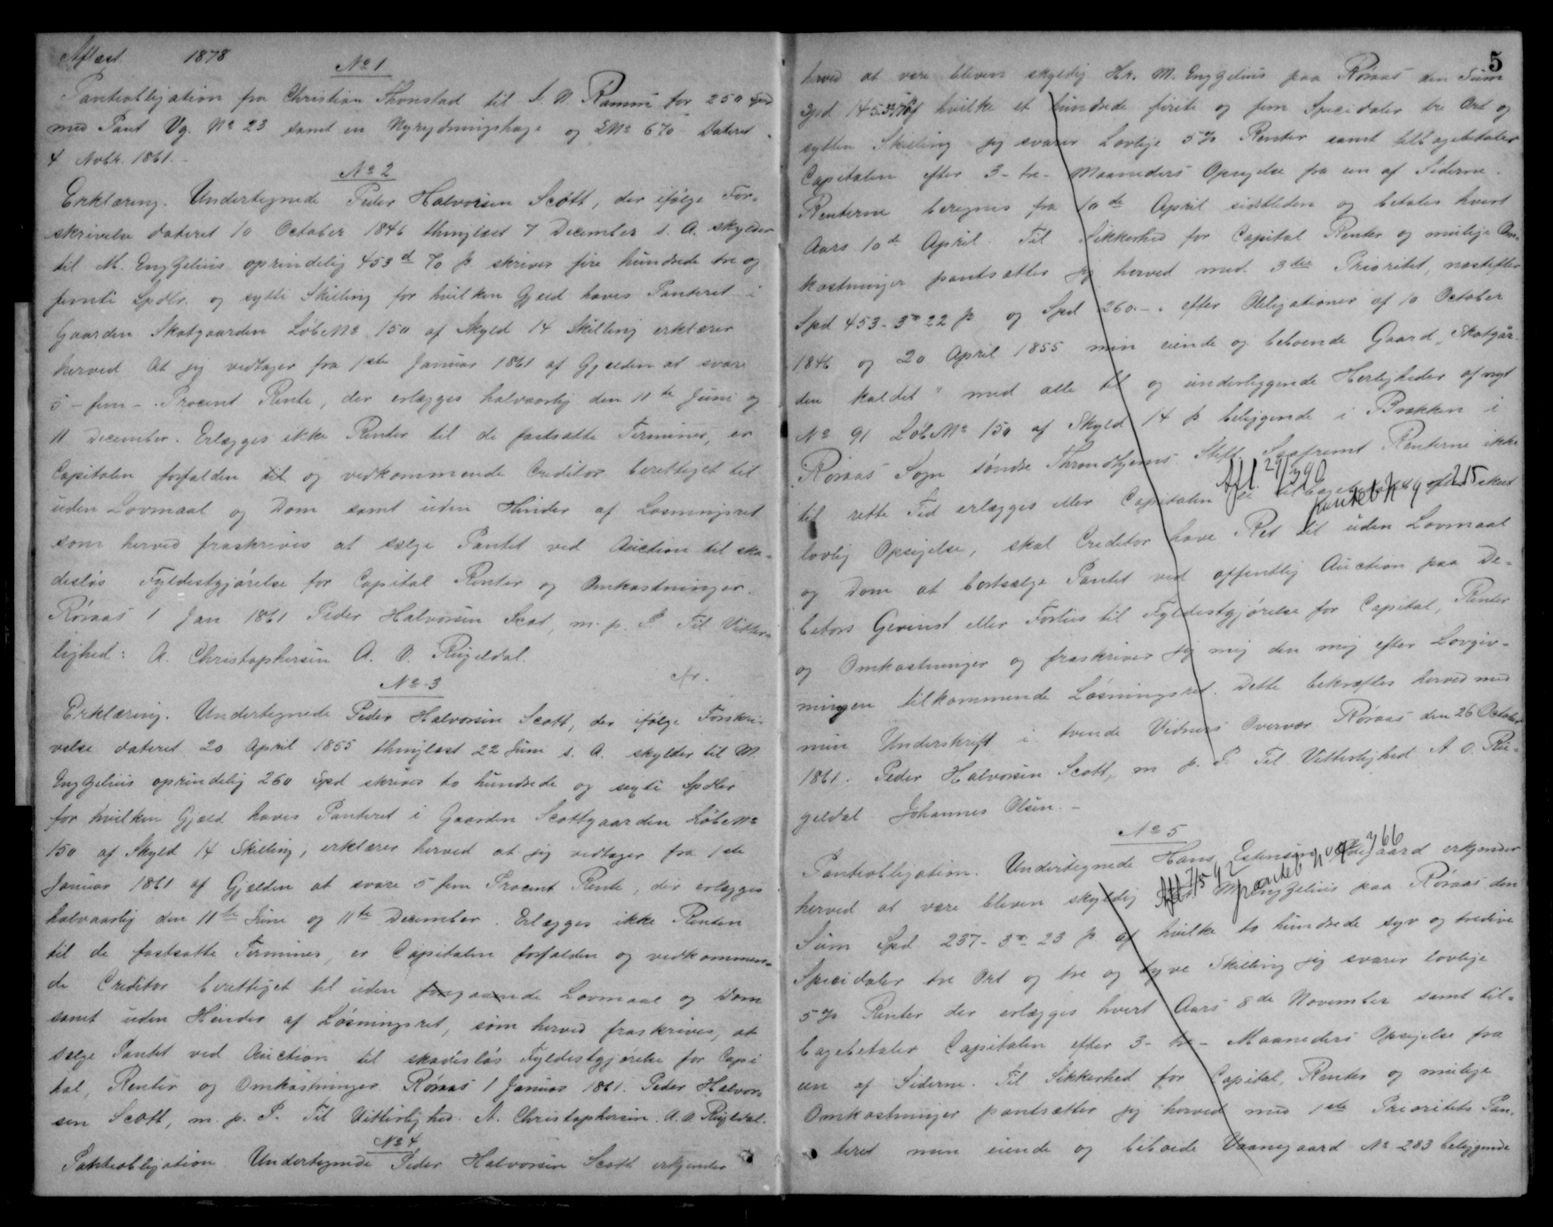 Aflæst 1878
No 1
Pantobligation fra Christian Thonstad til A. O. Ramm for 250 Spd
med Pant Vg. No 23 samt en Nyrydningshage og LNo 670 Dateret
4 Novbr. 1861.
No 2
Erklæring. Undertegnede Peder Halvorsen Scott, der ifølge For-
skrivelse dateret 10 October 1846 thinglæst 7 December s. A. skylder
til M. Engzelius oprindelig 453 d 70 β skriver fire hundrede tre og
femti Spdlr. og sytti Skilling for hvilken Gjæld haves Panteret i
Gaarden Skotgaarden LøbeNo 150 af Skyld 14 Skilling erklærer
herved At jeg vedtager fra 1ste Januar 1861 af Gjælden at svare
5 - fem - Procent Rente, der erlægges halvaarlig den 11te Juni og
11 December. Erlægges ikke Renter til de fastsatte Terminer, er
Capitalen forfalden til og vedkommende Creditor berettiget til
uden Lovmaal og Dom samt uden Hinder af Løsningsret
som herved fraskrives at sælge Pantet ved Auction til ska-
desløs Fyldestgjørelse for Capital Renter og Omkostninger.
Røraas 1 Jan 1861 Peder Halvorsen Scot, m. p. P. Til Vitter-
lighed: A. Christophersen A. O. Rugeldal.
No 3
Erklæring. Undertegnede Peder Halvorsen Scott, der ifølge Forskri-
velse dateret 20 April 1855 thinglæst 22 Juni s. A. skylder til M.
Engzelius oprindelig 260 Spd skriver to hundrede og sexti Spdlr
for hvilken Gjæld haves Panteret i Gaarden Scottgaarden LøbeNo
150 af Skyld 14 Skilling, erklærer herved at jeg vedtager fra 1ste
Januar 1861 af Gjælden at svare 5 fem Procent Rente, der erlægges
halvaarlig den 11te Juni og 11te December. Erlægges ikke Renten
til de fastsatte Terminer, er Capitalen forfalden og vedkommen-
de Creditor berettiget til uden foregaaende Lovmaal og Dom
samt uden Hinder af Løsningsret, som herved fraskrives, at
sælge Pantet ved Auction til skadesløs Fyldestgjørelse for Capi
tal, Renter og Omkostninger. Røraas 1 Januar 1861. Peder Halvor-
sen Scott, m. p. P. Til Vitterlighed. A. Christophersen. A. O. Rugeldal.
No 4
Pantobligation Undertegnede Peder Halvorsen Scott erkjender
5
herved at være bleven skyldig Hr. M. Engzelius paa Røraas den Sum
Spd 145. hvilke et hundrede firti og fem Specidaler tre Ort og
sytten Skilling jeg svarer Lovlige 5% Renter samt tilbagebetaler
Capitalen efter 3 - tre - Maaneders Opsigelse fra en af Siderne.
Renterne beregnes fra 10de April sidstleden og betales hvert
Aars 10de April. Til Sikkerhed for Capital Renter og mulige Om-
kostninger pantsætter jeg herved med 3die Prioritet, næstefter
Spd 453 - 3 22 β og Spd 260 - efter Obligationer af 10 October
1846 og 20 April 1855 min eiende og beboende Gaard „Skotgår-
den kaldet“ med alle til og underliggende Herligheder af nyt
No 91 LøbeNo 150 af Skyld 14 β beliggende i Brækken i
Røraas Sogn søndre Throndhjems Stift. Saafremt Renterne ikke
til rette Tid erlægges eller Capitalen tilbagebetales efter skeet
Afl. 29/3 90 pantebk 9 215
lovlig Opsigelse, skal Creditor have Ret til uden Lovmaal
og Dom at bortsælge Pantet ved offentlig Auction paa De-
bitors Gevinst eller Forliis til Fyldestgjørelse for Capital, Renter
og Omkostninger og fraskriver jeg mig den mig efter Lovgiv-
ningen tilkommende Løsningsret. Dette bekræftes herved med
min Underskrift i tvende Vidners Overvær Røraas den 26 October
1861. Peder Halvorsen Scott, m. p. P. Til Vitterlighed A. O. Ru-
geldal Johannes Olsen.
No 5
Pantobligation. Undertegnede Hans Estensen erkjender
Afl 7/5 92 366
herved at være bleven skyldig M. Engzelius paa Røraas den
Sum Spd 237 - 3 - 23 β hvilke to hundrede syv og tredive
Specidaler tre Ort og tre og tyve Skilling jeg svarer lovlige
5% Renter der erlægges hvert Aars 8de November samt til-
bagebetaler Capitalen efter 3 - tre - Maaneders Opsigelse fra
en af Siderne. Til Sikkerhed for Capital, Renter og mulige
Omkostninger pantsætter jeg herved med 1ste Prioritets Pan-
teret min eiende og beboede Vaanegaard No 283 beliggende